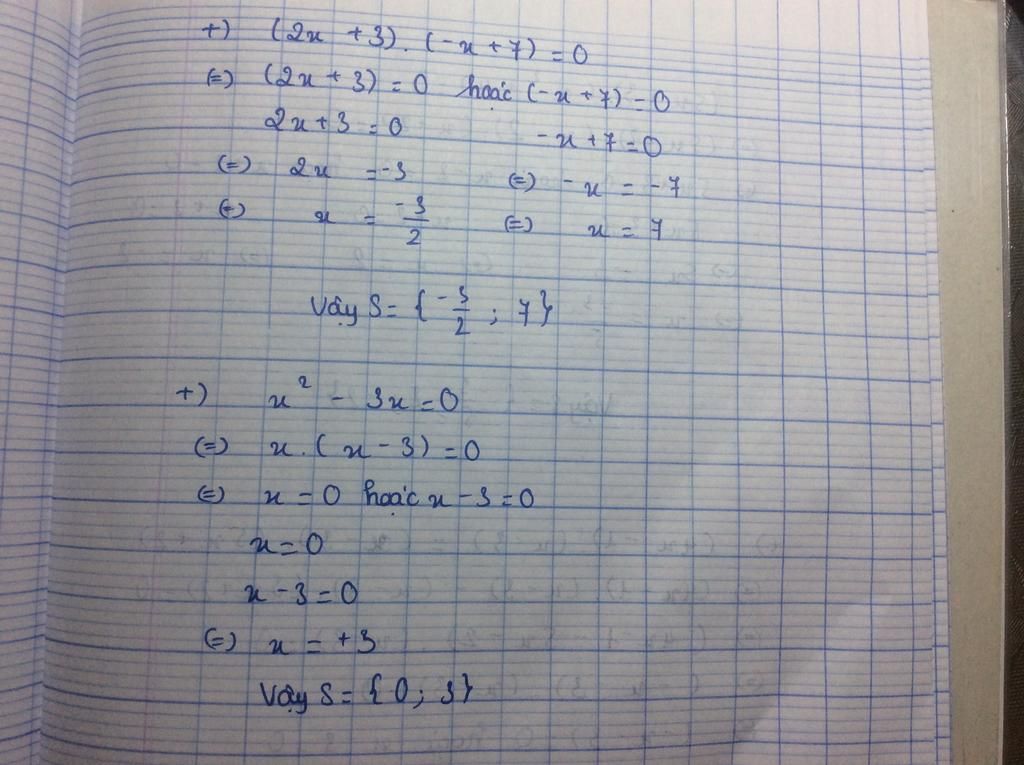 +) (2x + 3). (-x + 7) = 0
(=) (2x + 3) = 0 hoặc (-x + 7) = 0
2x + 3 = 0 -x + 7 = 0
(=) 2x = -3 (=) -x = -7
(=) x = -3/2 (=) x = 7
Vậy S = {-3/2 ; 7}
+) x² - 3x = 0
(=) x. (x - 3) = 0
(=) x = 0 hoặc x - 3 = 0
x = 0
x - 3 = 0
(=) x = +3
Vậy S = {0 ; 3}